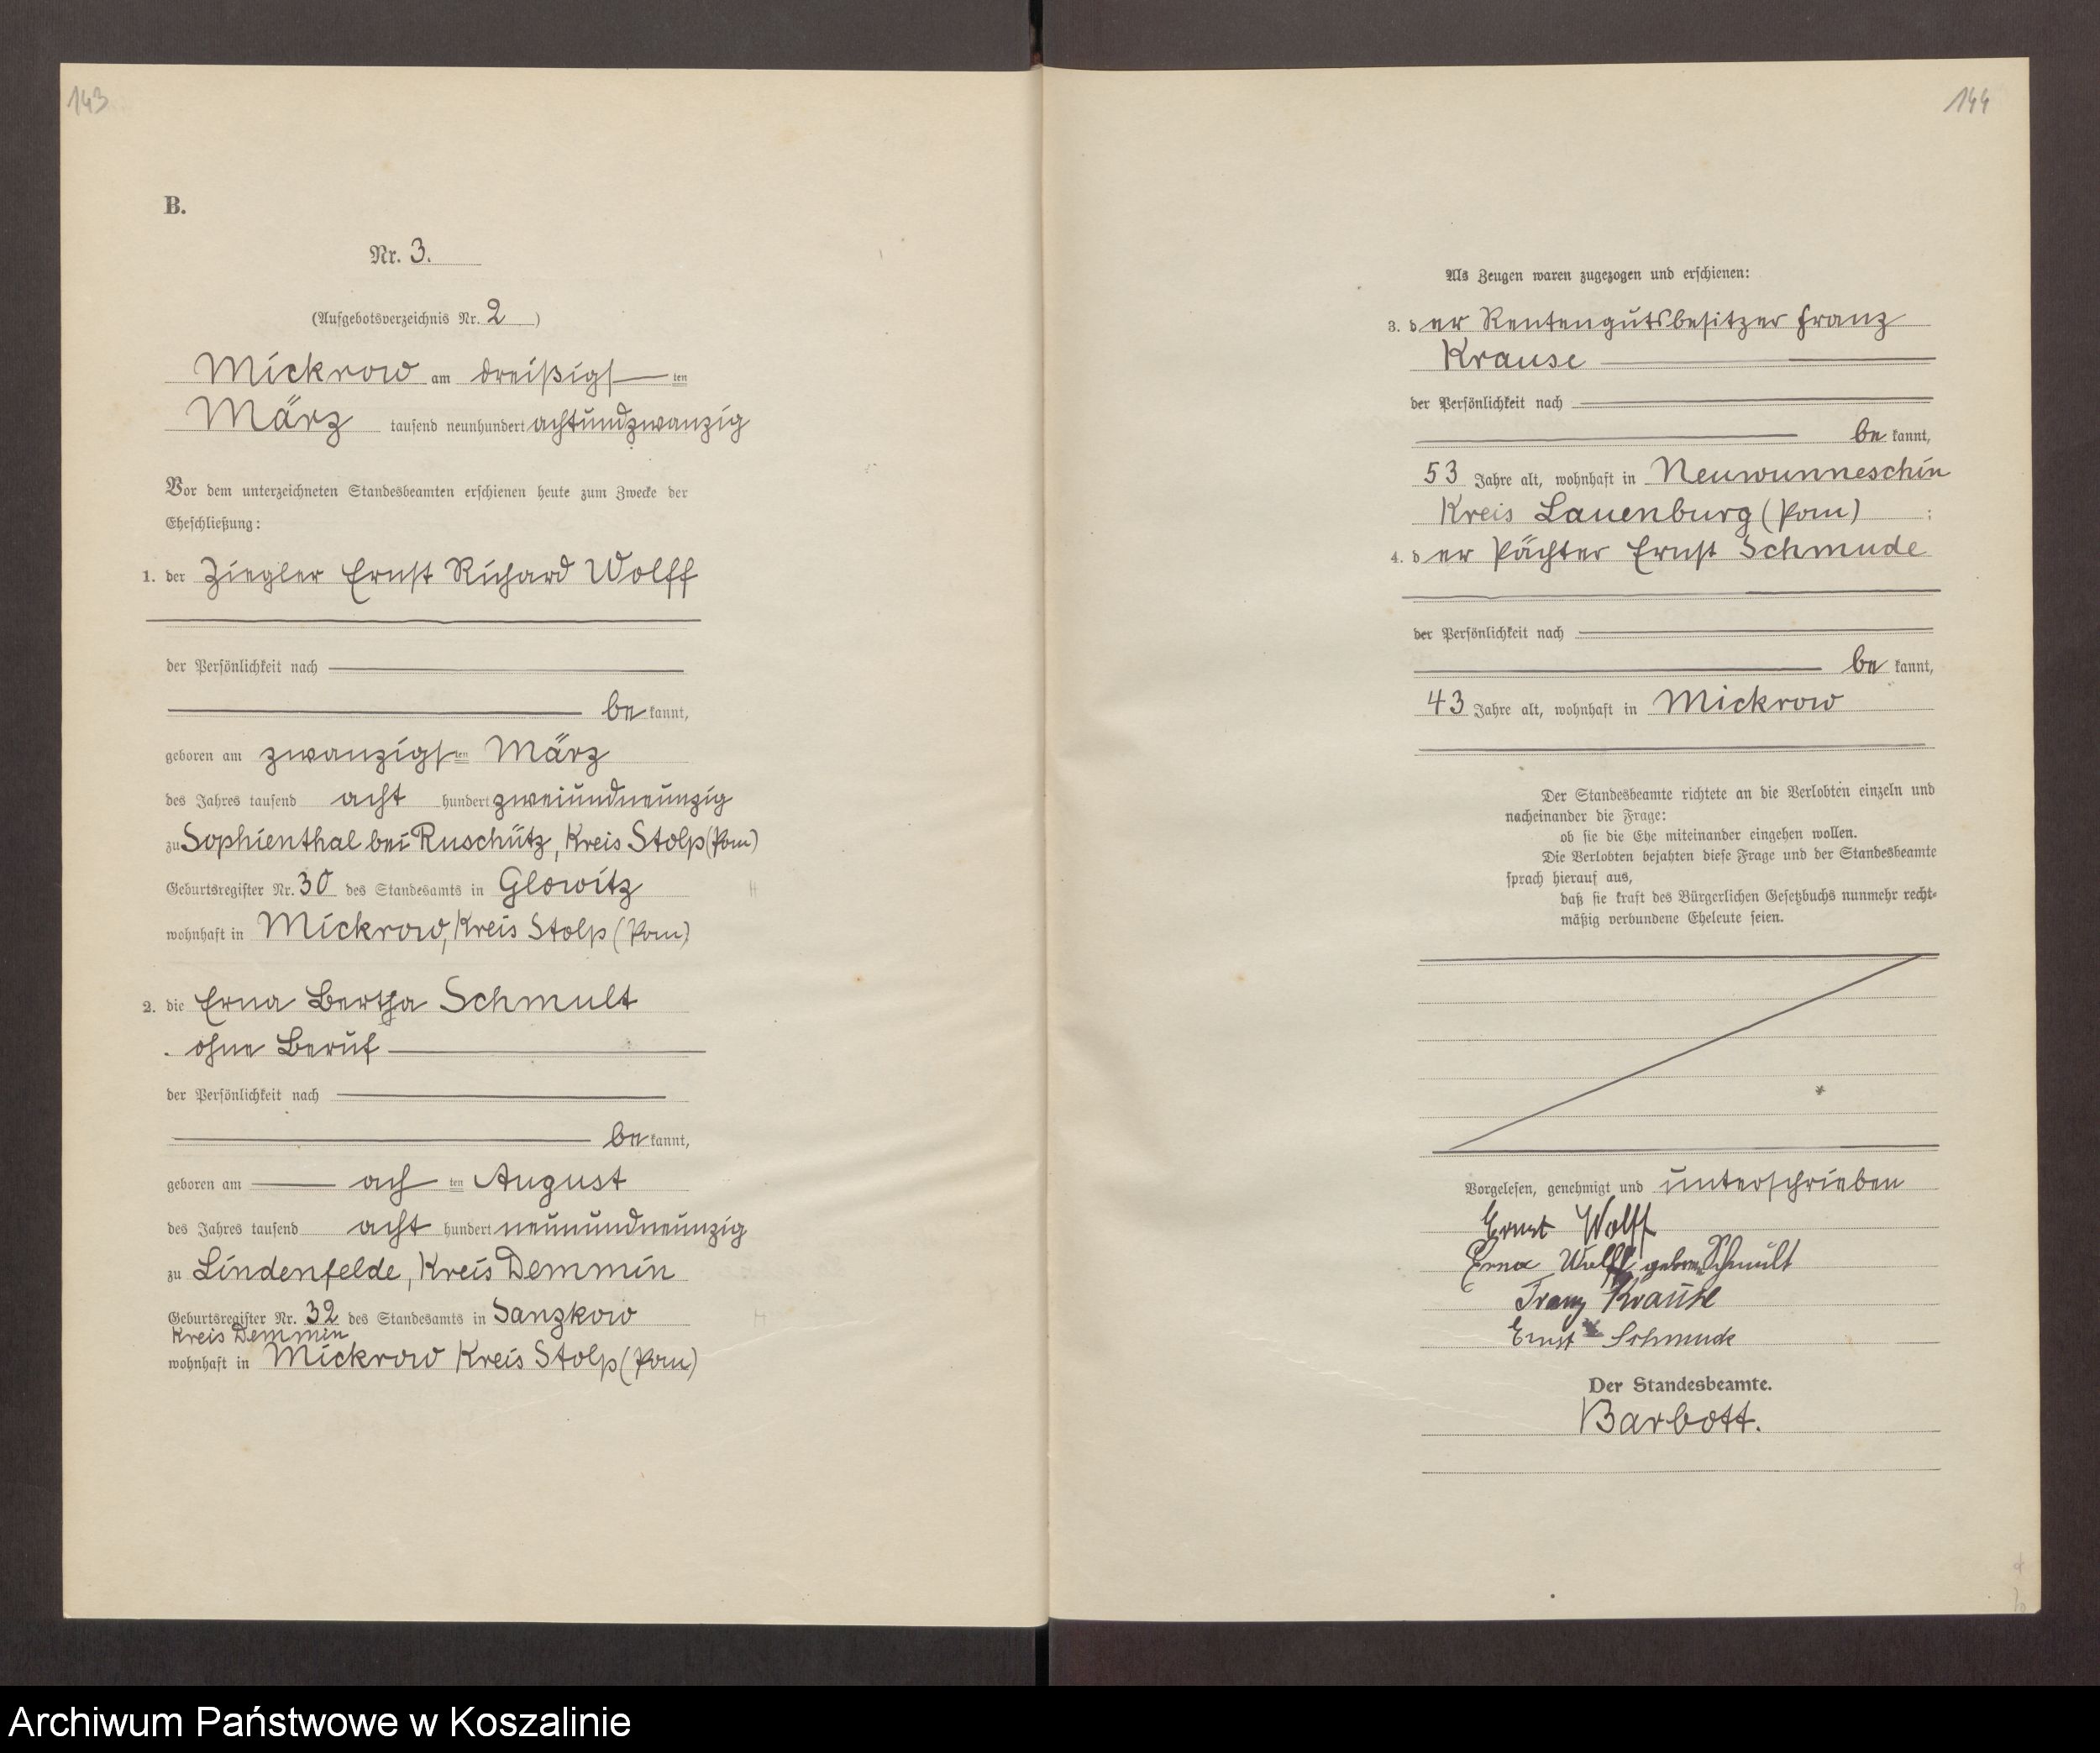 143
B.
Nr. 3.
(Aufgebotsverzeichnis Nr. 2)
Mickrow am dreißigsten
März tausend neunhundert achtundzwanzig
Vor dem unterzeichneten Standesbeamten erschienen heute zum Zwecke der
Eheschließung:
1. der Ziegler Ernst Richard Wolff
der Persönlichkeit nach
be kannt,
geboren am zwanzigsten März
des Jahres tausend acht hundert zweiundneunzig
zu Sophienthal bei Ruschütz, Kreis Stolp (Pom)
Geburtsregister Nr. 30 des Standesamts in Glowitz
wohnhaft in Mickrow, Kreis Stolp (Pom)
2. die Erna Bertha Schmult
ohne Beruf
der Persönlichkeit nach
be kannt,
geboren am achten August
des Jahres tausend acht hundert neunundneunzig
zu Lindenfelde, Kreis Demmin
Geburtsregister Nr. 32 des Standesamts in Sanzkow
Kreis Demmin
wohnhaft in Mickrow Kreis Stolp (Pom)
144
Als Zeugen waren zugezogen und erschienen:
3. der Rentengutsbesitzer Franz
Krause
der Persönlichkeit nach
be kannt,
53 Jahre alt, wohnhaft in Neuwunneschin
Kreis Lauenburg (Pom) ;
4. der Pächter Ernst Schmude
der Persönlichkeit nach
be kannt,
43 Jahre alt, wohnhaft in Mickrow
Der Standesbeamte richtete an die Verlobten einzeln und
nacheinander die Frage:
ob sie die Ehe miteinander eingehen wollen.
Die Verlobten bejahten diese Frage und der Standesbeamte
sprach hierauf aus,
daß sie kraft des Bürgerlichen Gesetzbuchs nunmehr recht-
mäßig verbundene Eheleute seien.
Vorgelesen, genehmigt und unterschrieben
Ernst Wolff
Erna Wolff geboren Schmült
Franz Krause
Ernst Schmude
Der Standesbeamte.
Barbott.
Archiwum Państwowe w Koszalinie